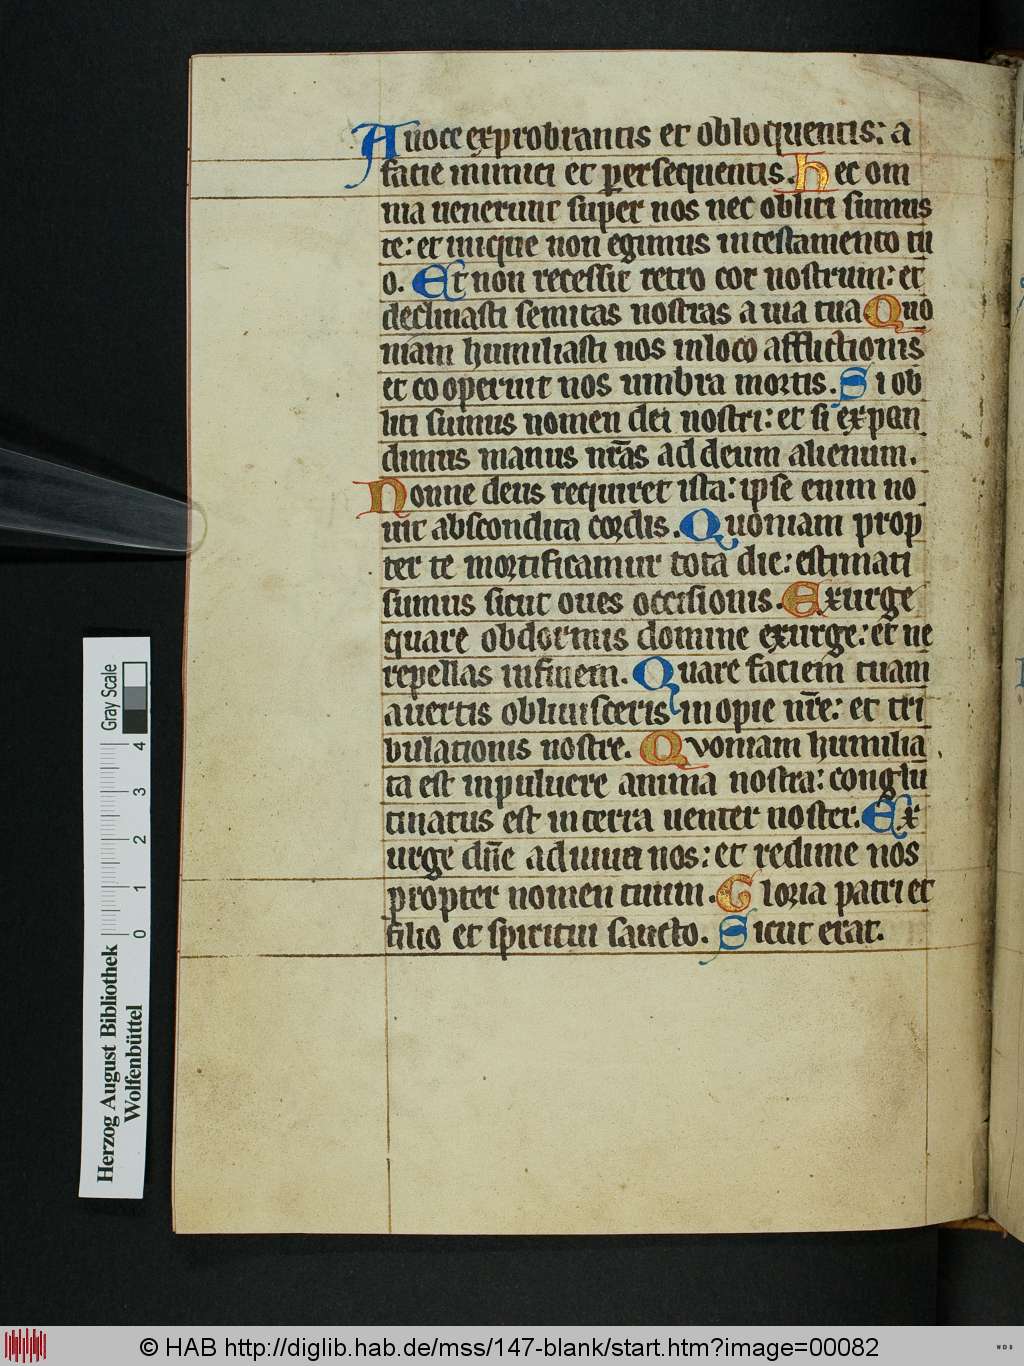 Auoce exprobrantis et obloquentis: a
facie inimici et persequentis. hec om
nia uenerunt super nos nec obliti sumus
te: et inique non egimus intestamento tu
o. Et non recessit retro cor nostrum: et
declinasti semitas nostras a uia tua Quo
niam humiliasti nos inloco afflictionis
et cooperuit nos umbra mortis. Si ob
liti sumus nomen dei nostri: et si expan
dimus manus nr̃as ad deum alienum.
Nonne deus requiret ista: ipse enim no
uit abscondita cordis. Quoniam prop
ter te mortificamur tota die: estimati
sumus sicut oues occisionis. Exurge
quare obdormis domine exurge: et ne
repellas infinem. Quare faciem tuam
auertis obliuisceris inopie nr̃e: et tri
bulationis nostre. Quoniam humilia
ta est inpuluere anima nostra: conglu
tinatus est in terra uenter noster. Ex
urge dñe adiuua nos: et redime nos
propter nomen tuum. Gloria patri et
filio et spiritui sancto. Sicut erat.
Gray Scale
4
3
2
1
0
Herzog August Bibliothek
Wolfenbüttel
© HAB http://diglib.hab.de/mss/147-blank/start.htm?image=00082